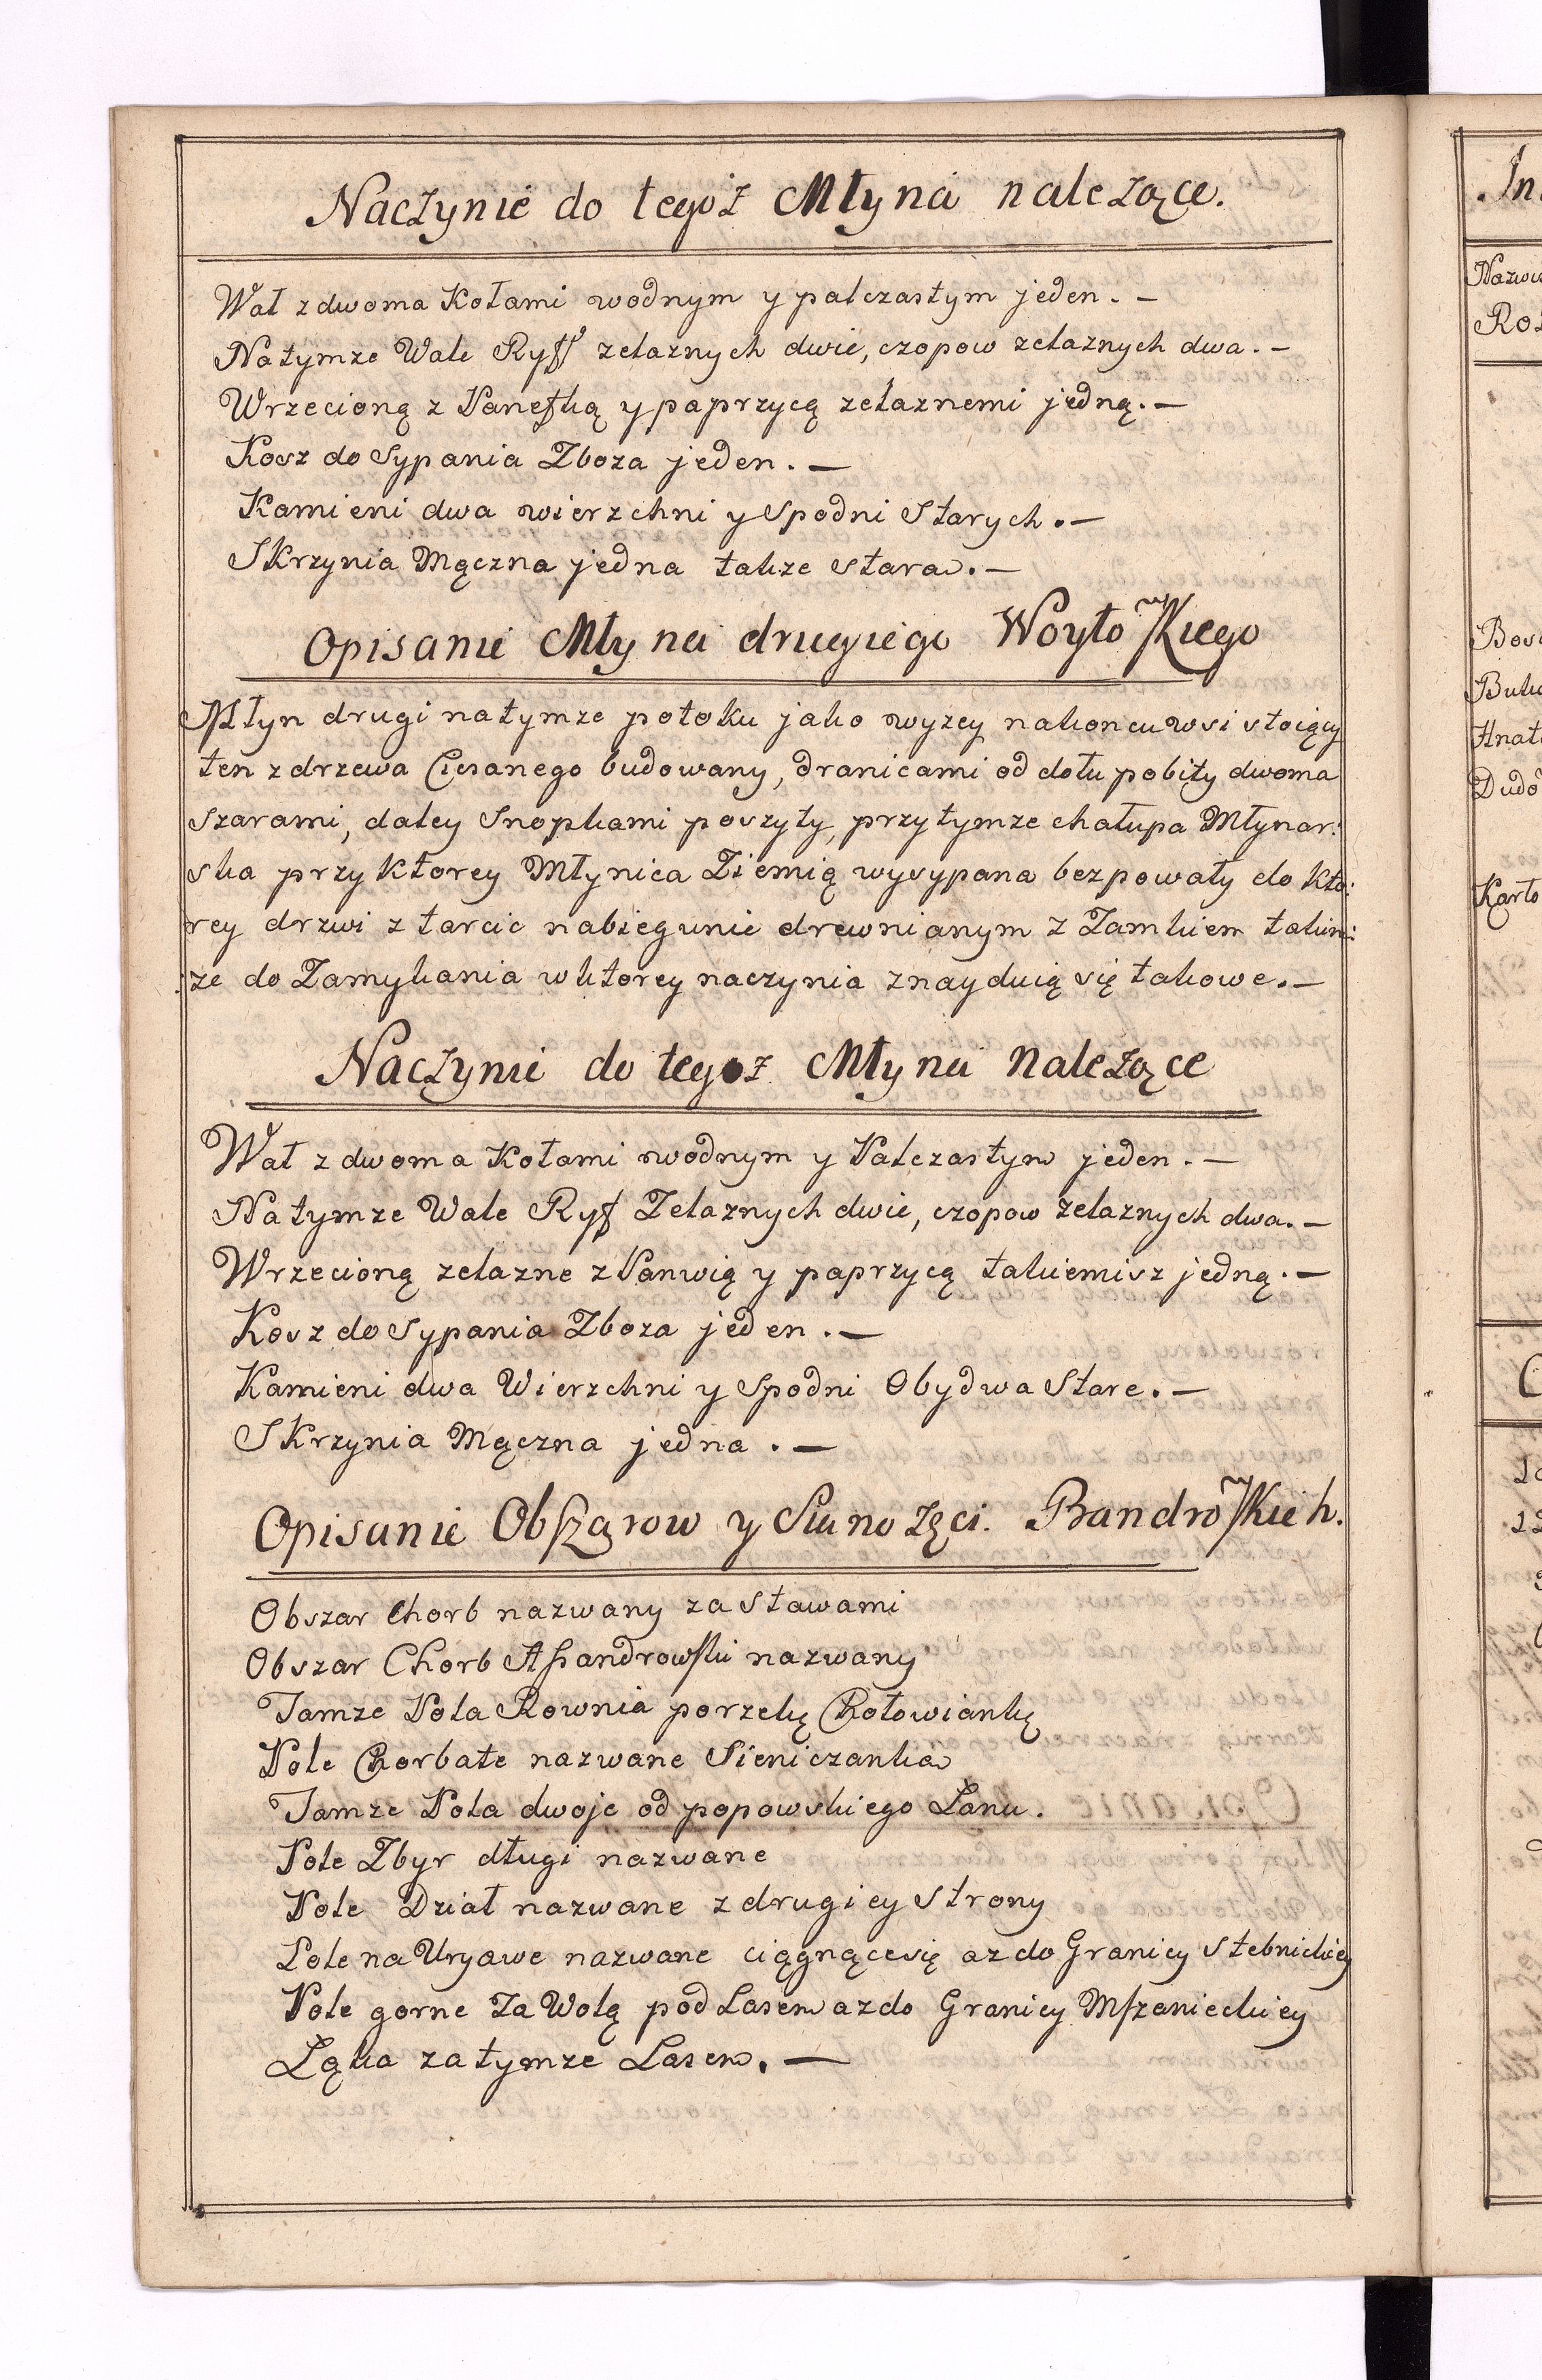 Naczynie do tegoż Młyna należące.
Wał z dwoma Kołami wodnym y palczastym jeden. –
Na tymze Wale Ryff zelaznych dwie, czopow zelaznych dwa. –
Wrzecioną z Panewką y paprzycą zelaznemi jedną. –
Kosz do Sypania Zboza jeden. –
Kamieni dwa wierzchni y Spodni Starych. –
Skrzynia Mączna jedna takze stara. –
Opisanie Młyna drugiego Woytowskiego
Młyn drugi na tymze potoku jako wyzey nakoncu wsi stoiący
ten z drzewa Ciesanego budowany, dranicami od dołu pobity dwoma
szarami, daley Snopkami poszyty, przytymze chałupa Młynar:
ska przy ktorey Młynica Ziemią wysypana bez powały do kto:
rey drzwi z tarcic na biegunie drewnianym z Zamkiem takim:
:ze do Zamykania w ktorey naczynia znayduią się takowe. –
Naczynie do tegoz Młyna Należące
Wał z dwoma Kołami wodnym y Palczastym jeden. –
Na tymze Wale Ryf Zelaznych dwie, czopow zelaznych dwa. –
Wrzecioną zelazne z Panwią y paprzycą takiemisz jedną. –
Kosz do Sypania Zboza jeden. –
Kamieni dwa Wierzchni y Spodni Obydwa Stare. –
Skrzynia Mączna jedna. –
Opisanie Obszarow y Sianożęci. Bandrowskich.
Obszar Chorb nazwany za Stawami
Obszar Chorb nazwany
Tamze Pola Rownia po rzekę
Pole Chorbate nazwane Sieniczanka
Tamze Pola dwoje od popowskiego Łanu.
Pole Zbyr długi nazwane
Pole Dział nazwane z drugiey Strony
Pole na nazwane ciągnącesię az do Granicy Stebnickiey
Pole gorne Za Wolą pod Lasem az do Granicy Mszanieckiey
Łąka za tymze Lasem. –
Nazwi